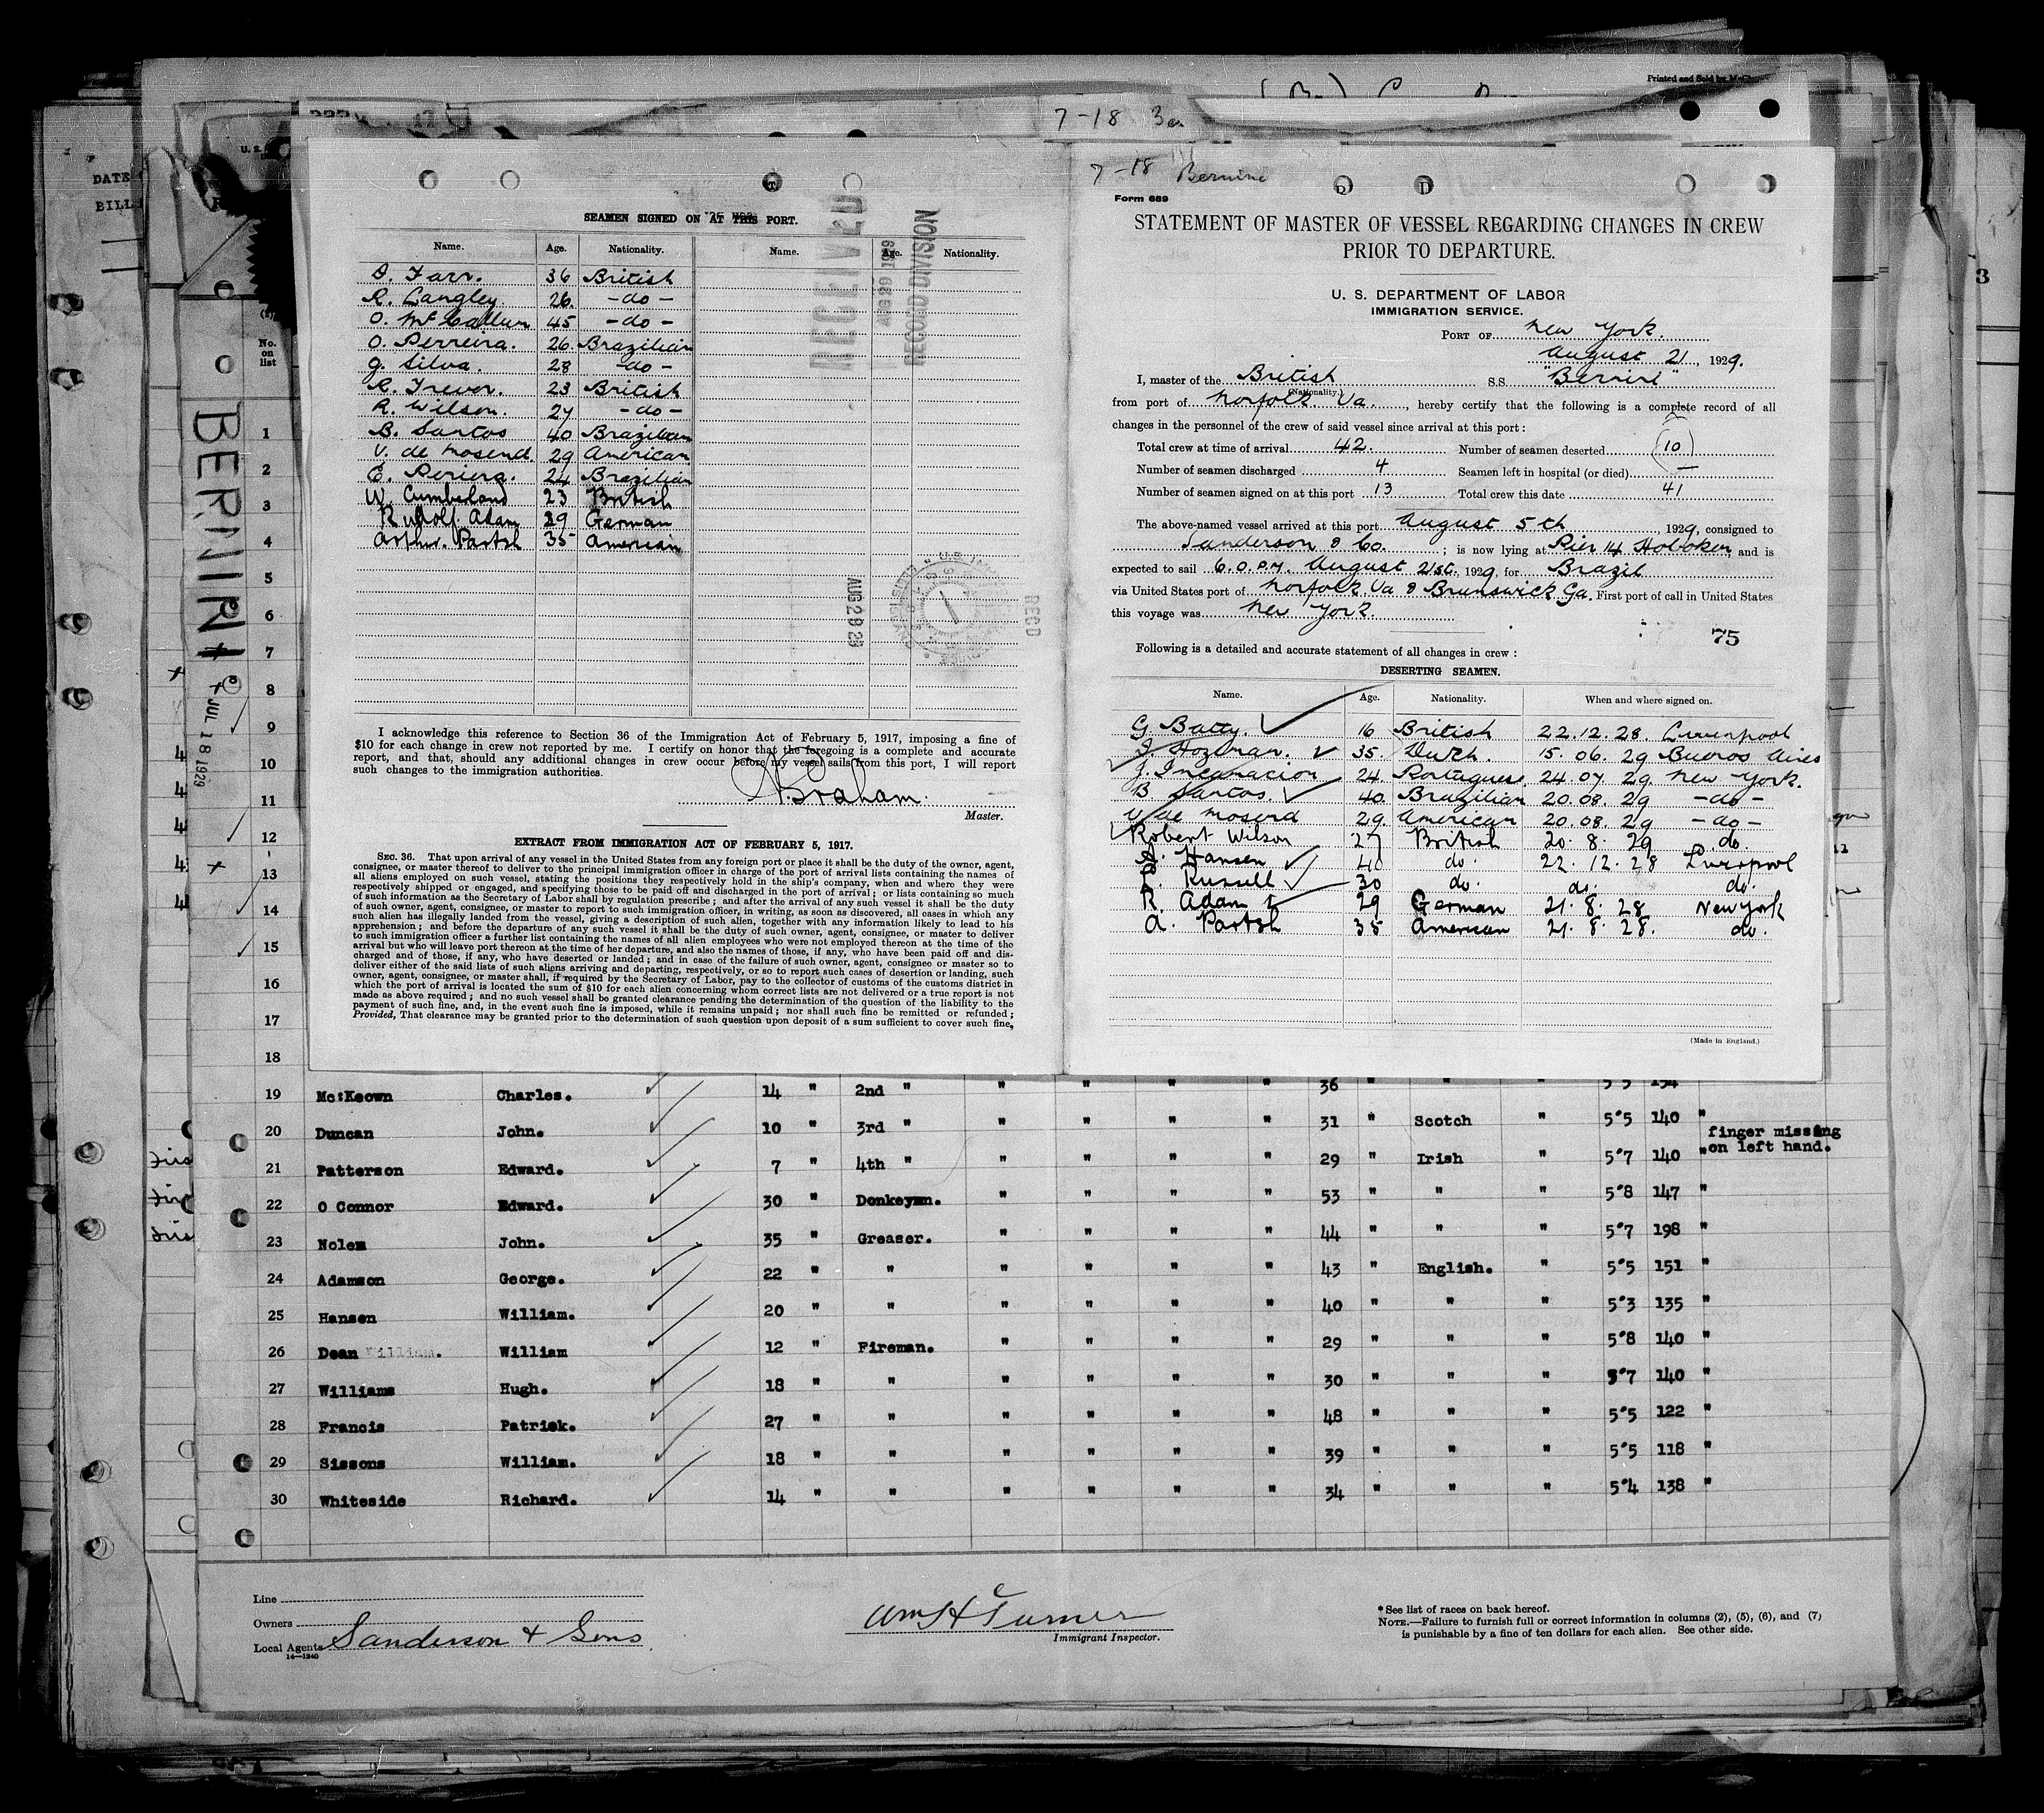 Printed and Sold by
7-18 3a.
DATE
BILL
U. S.
No. on list
BERNINI
JUL 18 1929
SEAMEN SIGNED ON AT THIS PORT.
Name. Age. Nationality. Name. Age. Nationality.
Farr. 36 British
R. Langley. 26. -do-
O. McCallum 45 -do-
O. Perreira. 26. Brazilian
G. Silva. 28 -do-
R. Trevor. 23 British
R. Wilson. 27 -do-
B. Santos 40 Brazilian
V. de Mosend. 29 American
E. Periera. 24 Brazilian
W. Cumberland 23 British
Rudolf. Adam 29 German
Arthur. Partsh 35 American
RECEIVED
AUG 29 1929
RECORD DIVISION
AUG 28 29
RECD
I acknowledge this reference to Section 36 of the Immigration Act of February 5, 1917, imposing a fine of
$10 for each change in crew not reported by me. I certify on honor that the foregoing is a complete and accurate
report, and that, should any additional changes in crew occur before my vessel sails from this port, I will report
such changes to the immigration authorities.
Graham.
Master.
EXTRACT FROM IMMIGRATION ACT OF FEBRUARY 5, 1917.
SEC. 36. That upon arrival of any vessel in the United States from any foreign port or place it shall be the duty of the owner, agent,
consignee, or master thereof to deliver to the principal immigration officer in charge of the port of arrival lists containing the names of
all aliens employed on such vessel, stating the positions they respectively hold in the ship's company, when and where they were
respectively shipped or engaged, and specifying those to be paid off and discharged in the port of arrival; or lists containing so much
of such information as the Secretary of Labor shall by regulation prescribe; and after the arrival of any such vessel it shall be the duty
of such owner, agent, consignee, or master to report to such immigration officer, in writing, as soon as discovered, all cases in which any
such alien has illegally landed from the vessel, giving a description of such alien, together with any information likely to lead to his
apprehension; and before the departure of any such vessel it shall be the duty of such owner, agent, consignee, or master to deliver
to such immigration officer a further list containing the names of all alien employees who were not employed thereon at the time of the
arrival but who will leave port thereon at the time of her departure, and also the names of those, if any, who have been paid off and dis-
charged and of those, if any, who have deserted or landed; and in case of the failure of such owner, agent, consignee or master so to
deliver either of the said lists of such aliens arriving and departing, respectively, or so to report such cases of desertion or landing, such
owner, agent, consignee, or master shall, if required by the Secretary of Labor, pay to the collector of customs of the customs district in
which the port of arrival is located the sum of $10 for each alien concerning whom correct lists are not delivered or a true report is not
made as above required; and no such vessel shall be granted clearance pending the determination of the question of the liability to the
payment of such fine, and, in the event such fine is imposed, while it remains unpaid; nor shall such fine be remitted or refunded;
Provided, That clearance may be granted prior to the determination of such question upon deposit of a sum sufficient to cover such fine,
7-18 Bernini
Form 689
STATEMENT OF MASTER OF VESSEL REGARDING CHANGES IN CREW
PRIOR TO DEPARTURE.
U. S. DEPARTMENT OF LABOR
IMMIGRATION SERVICE.
PORT OF New York.
August 21, 1929.
I, master of the British S.S. "Bernini"
(Nationality.)
from port of Norfolk Va., hereby certify that the following is a complete record of all
changes in the personnel of the crew of said vessel since arrival at this port:
Total crew at time of arrival 42. Number of seamen deserted 10
Number of seamen discharged 4 Seamen left in hospital (or died) —
Number of seamen signed on at this port 13 Total crew this date 41
The above-named vessel arrived at this port August 5th, 1929, consigned to
Sanderson & Co.; is now lying at Pier 14 Hoboken, and is
expected to sail 6.0 P.M. August 21st, 1929, for Brazil
via United States port of Norfolk Va & Brunswick Ga. First port of call in United States
this voyage was New York.
75
Following is a detailed and accurate statement of all changes in crew:
DESERTING SEAMEN.
Name. Age. Nationality. When and where signed on.
G. Batty. 16 British 22.12.28 Liverpool
J. Hozeman. 35. Dutch. 15.06.29 Buenos Aires
J. Incarnacion 24 Portuguese. 24.07.29. New York.
B Santos. 40. Brazilian 20.08.29 -do-
V de Mosend 29. American 20.08.29 -do-
Robert Wilson 27 British 20.8.29 do
Hansen 40 do. 22.12.28 Liverpool
Russell 30 do. do. do.
R. Adam 29 German 21.8.28 New York
A. Partsh 35 American 21.8.28. do.
(Made in England.)
1
2
3
4
5
6
7
8
9
10
11
12
13
14
15
16
17
18
19 Mc:Keown Charles. 14 " 2nd " " " " " 36 " " " 5'5 134
20 Duncan John. 10 " 3rd " " " " " 31 " Scotch " 5'5 140 "
finger missing
21 Patterson Edward. 7 " 4th " " " " " 29 " Irish " 5'7 140 " on left hand.
22 O Connor Edward. 30 " Donkeymn. " " " " 53 " " " 5'8 147 "
23 Nolem John. 35 " Greaser. " " " " 44 " " " 5'7 198 "
24 Adamson George. 22 " " " " " " 43 " English. " 5'5 151 "
25 Hansen William. 20 " " " " " " 40 " " " 5'3 135 "
26 Dean William. William 12 " Fireman. " " " " 29 " " " 5'8 140 "
27 Williams Hugh. 18 " " " " " " 30 " " " 5'7 140 "
28 Francis Patrick. 27 " " " " " " 48 " " " 5'5 122 "
29 Sissons William. 18 " " " " " " 39 " " " 5'5 118 "
30 Whiteside Richard. 14 " " " " " " 34 " " " 5'4 138 "
Line
Owners
Local Agents Sanderson & Sons
14—1240
Wm H Turner
Immigrant Inspector.
* See list of races on back hereof.
NOTE.—Failure to furnish full or correct information in columns (2), (5), (6), and (7)
is punishable by a fine of ten dollars for each alien. See other side.